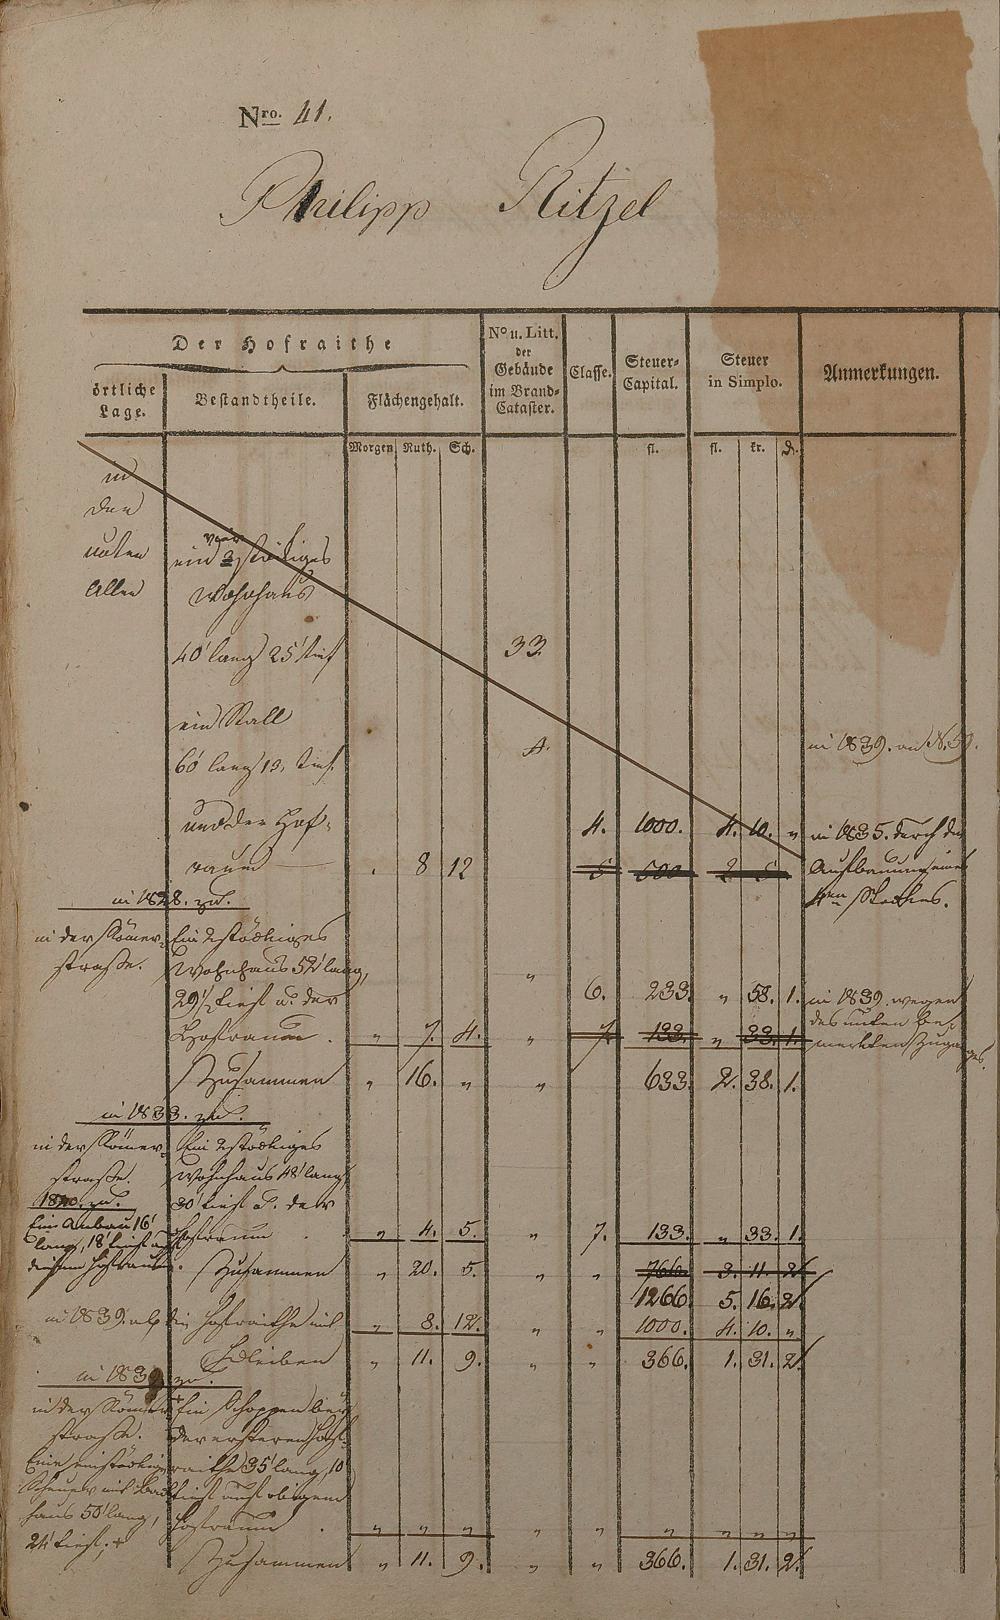 Nro. 41.
Philipp Ritzel
Der Hofraithe
örtliche Lage.
Bestandtheile.
Flächengehalt.
No u. Litt. der Gebäude im Brand-Cataster.
Classe.
Steuer-Capital.
Steuer in Simplo.
Anmerkungen.
Morgen Ruth. Sch. fl. fl. kr. d.
in
der
unten
Allee
ein vier 3 stöckiges
Wohnhaus
40' lang 25' tief 33.
ein Stall
60' lang 13, tief. A. in 1839. an N.
und der Hof-
4. 1000. 4. 10. " in 1835. durch die
raum . 8 12 5 500 2 5 Aufbauung eines
4ten Stockes.
in 1828. zu.
in der Römer- Ein 2stöckiges
straße. Wohnhaus 52' lang,
29 1/2 tief u. der 6. 233. " 58. 1. in 1839. wegen
des unten be-
Hofraum . " 7. 4. " 7. 133. " 33. 1. merkten Zuganges.
Zusammen " 16. " " 633. 2. 38. 1.
in 1833. zu.
in der Römer- Ein 2stöckiges
straße. Wohnhaus 48' lang,
30' tief u. der
Hofraum . " 4. 5. " 7. 133. " 33. 1.
18 . zu.
Ein Anbau 16'
lang, 18' tief auf
diesem Hofraum.
Zusammen " 20. 5. " " 766. 3. 11. 2.
1266. 5. 16. 2.
in 1839. ab die Hofraithe mit " 8. 12. " " 1000. 4. 10. "
Bleiben " 11. 9. " " 366. 1. 31. 2.
in 1839 zu.
in der Römer- + Ein Schoppen
straße. der ersteren Hof-
Eine einstöckige raithe 35' lang, 10
Scheuer mit tief auf obigem
haus 50' lang, Hofraum . " " " " " " " " "
24' tief; +
Zusammen " 11. 9. " " 366. 1. 31. 2.